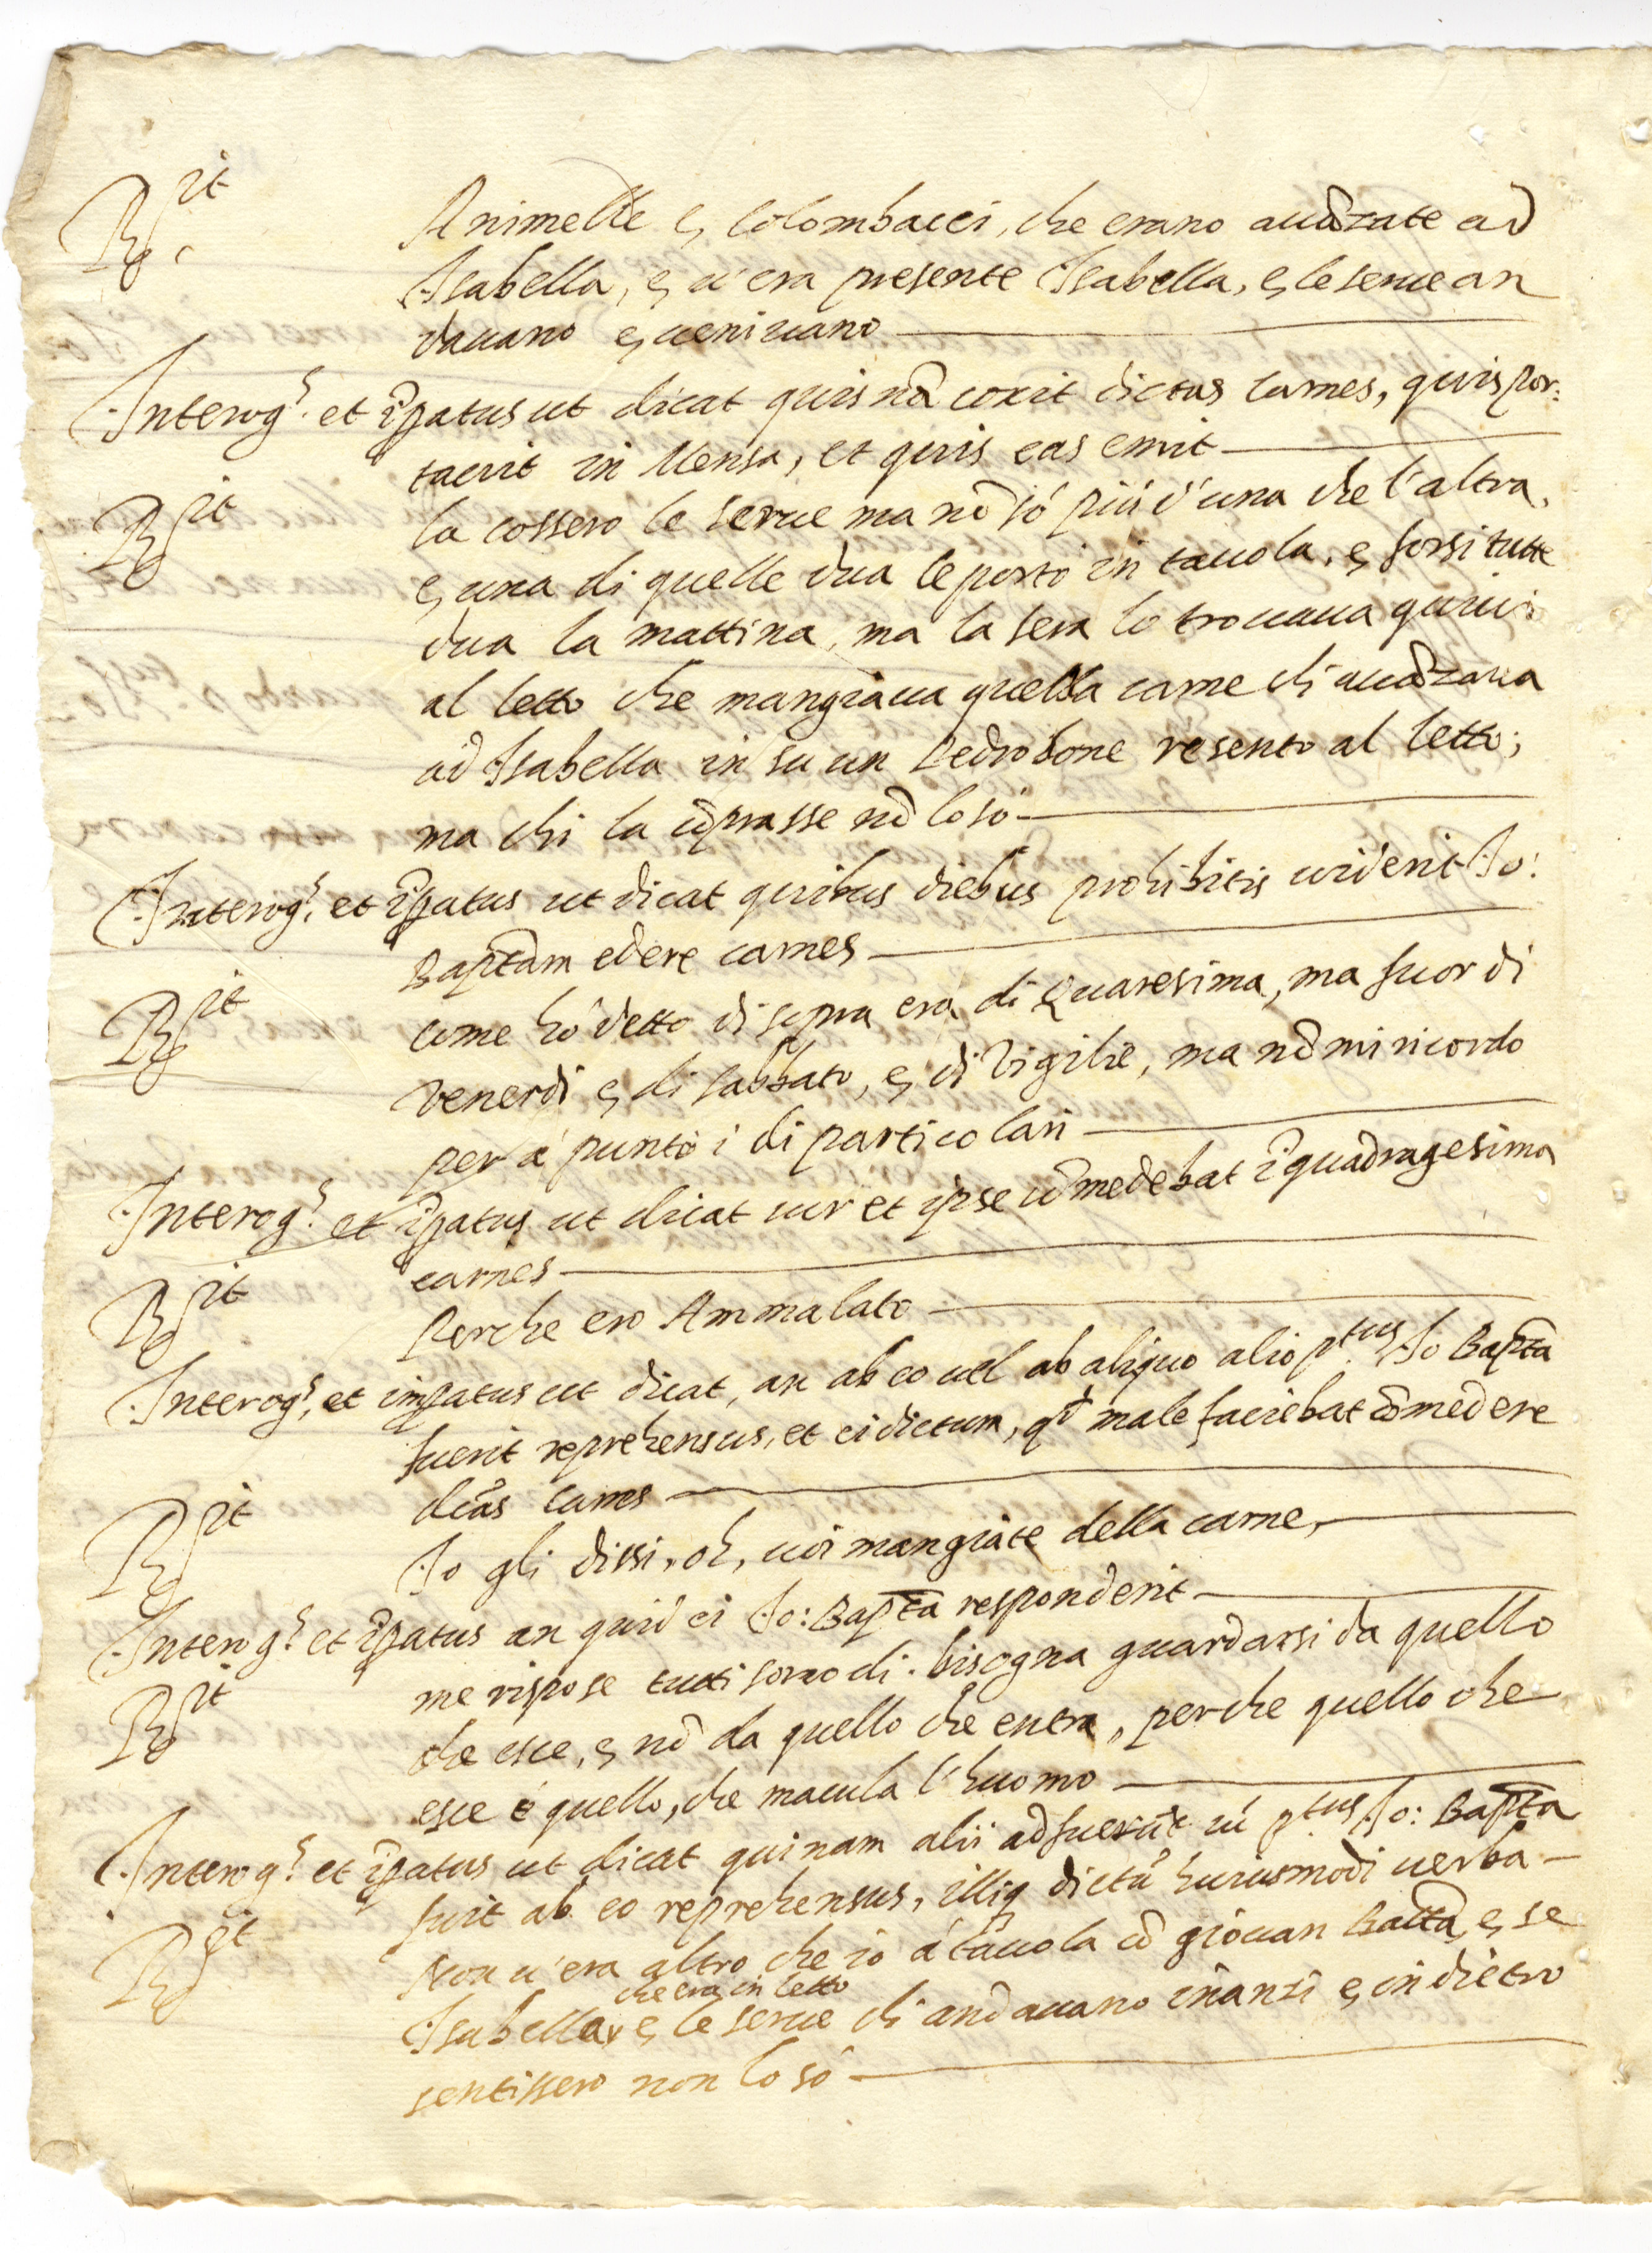 R.it Animelle e, Colombacci, che erano auãzate ad
Isabella, e, u'era presente Isabella, e, le serue an
dauano e, ueniuano
Interog.s et ĩpatus ut dicat quis nã coxit dictas carnes, quis por:
tauit in Mensa, et quis eas emit
R.it la cossero le serue ma nõ só piú d'una che l'altra,
e, una di quelle dua le portó in tauola, e, forsi tutte
dua la mattina, ma la sera lo trouaua quiui
al letto che mangiaua quella carne ch'auãzaua
ad Isabella in su un resento al letto;
ma chi la cõprasse nõ lo só
Interog.s et ĩpatus ut dicat quibus diebus prohibitis uiderit Io:
Baptam edere carnes
R.it Come hó detto di sopra era di Quaresima, ma fuor di
Venerdi e, di sabbato, e, di Vigilie, ma nõ mi ricordo
per á punto i di particolari
Interog.s et ĩpatus ut dicat cur et ipse cõmedebat ĩ quadragesima
carnes
R.it Perche ero Ammalato
Interog.s, et impatus ut dicat, an ab eo uel ab aliquo alio p.tus Io Bapta
fuerit reprehensus, et ei dictum, qd male faciebat cõmedere
dcãs carnes
R.it Io gli dissi, oh, uoi mangiate della carne,
Interog.s et ĩpatus an quid ei Io: Bapta responderit
R.it me rispose tutti sono di. bisogna guardarsi da quello
che esce, e, nõ da quello che entra, perche quello che
esce é quello, che macula l'huomo
Interog.s et ĩpatus ut dicat quinam alii adfuerũt cũ p.tus Io: Bapta
fuit ab eo reprehensus, illiq dictũ huiusmodi uerba
R.it Non u'era altro che io á tauola cõ giouan Batta, e, se
che era in letto
Isabella, e, le serue ch'andauano inanzi e, in dietro
sentissero non lo só